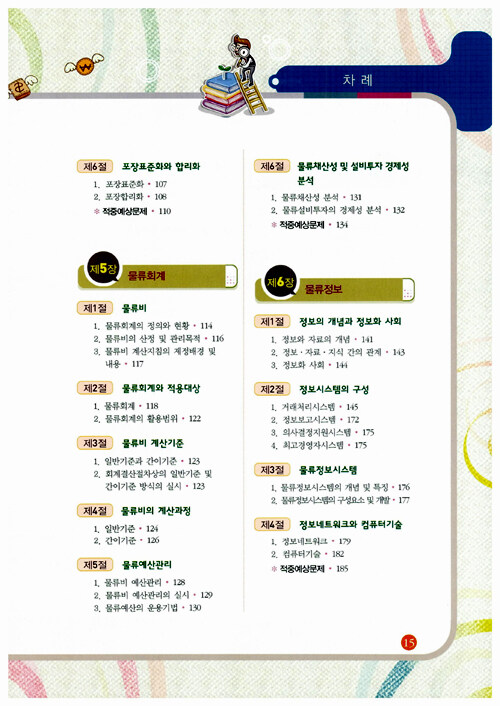 차 례
제6절 포장표준화와 합리화
1. 포장표준화 • 107
2. 포장합리화 • 108
※ 적중예상문제 • 110
제5장 물류회계
제1절 물류비
1. 물류회계의 정의와 현황 • 114
2. 물류비의 산정 및 관리목적 • 116
3. 물류비 계산지침의 제정배경 및
내용 • 117
제2절 물류회계와 적용대상
1. 물류회계 • 118
2. 물류회계의 활용범위 • 122
제3절 물류비 계산기준
1. 일반기준과 간이기준 • 123
2. 회계결산절차상의 일반기준 및
간이기준 방식의 실시 • 123
제4절 물류비의 계산과정
1. 일반기준 • 124
2. 간이기준 • 126
제5절 물류예산관리
1. 물류비 예산관리 • 128
2. 물류비 예산관리의 실시 • 129
3. 물류예산의 운용기법 • 130
제6절 물류채산성 및 설비투자 경제성
분석
1. 물류채산성 분석 • 131
2. 물류설비투자의 경제성 분석 • 132
※ 적중예상문제 • 134
제6장 물류정보
제1절 정보의 개념과 정보화 사회
1. 정보와 자료의 개념 • 141
2. 정보·자료·지식 간의 관계 • 143
3. 정보화 사회 • 144
제2절 정보시스템의 구성
1. 거래처리시스템 • 145
2. 정보보고시스템 • 172
3. 의사결정지원시스템 • 175
4. 최고경영자시스템 • 175
제3절 물류정보시스템
1. 물류정보시스템의 개념 및 특징 • 176
2. 물류정보시스템의 구성요소 및 개발 • 177
제4절 정보네트워크와 컴퓨터기술
1. 정보네트워크 • 179
2. 컴퓨터기술 • 182
※ 적중예상문제 • 185
15